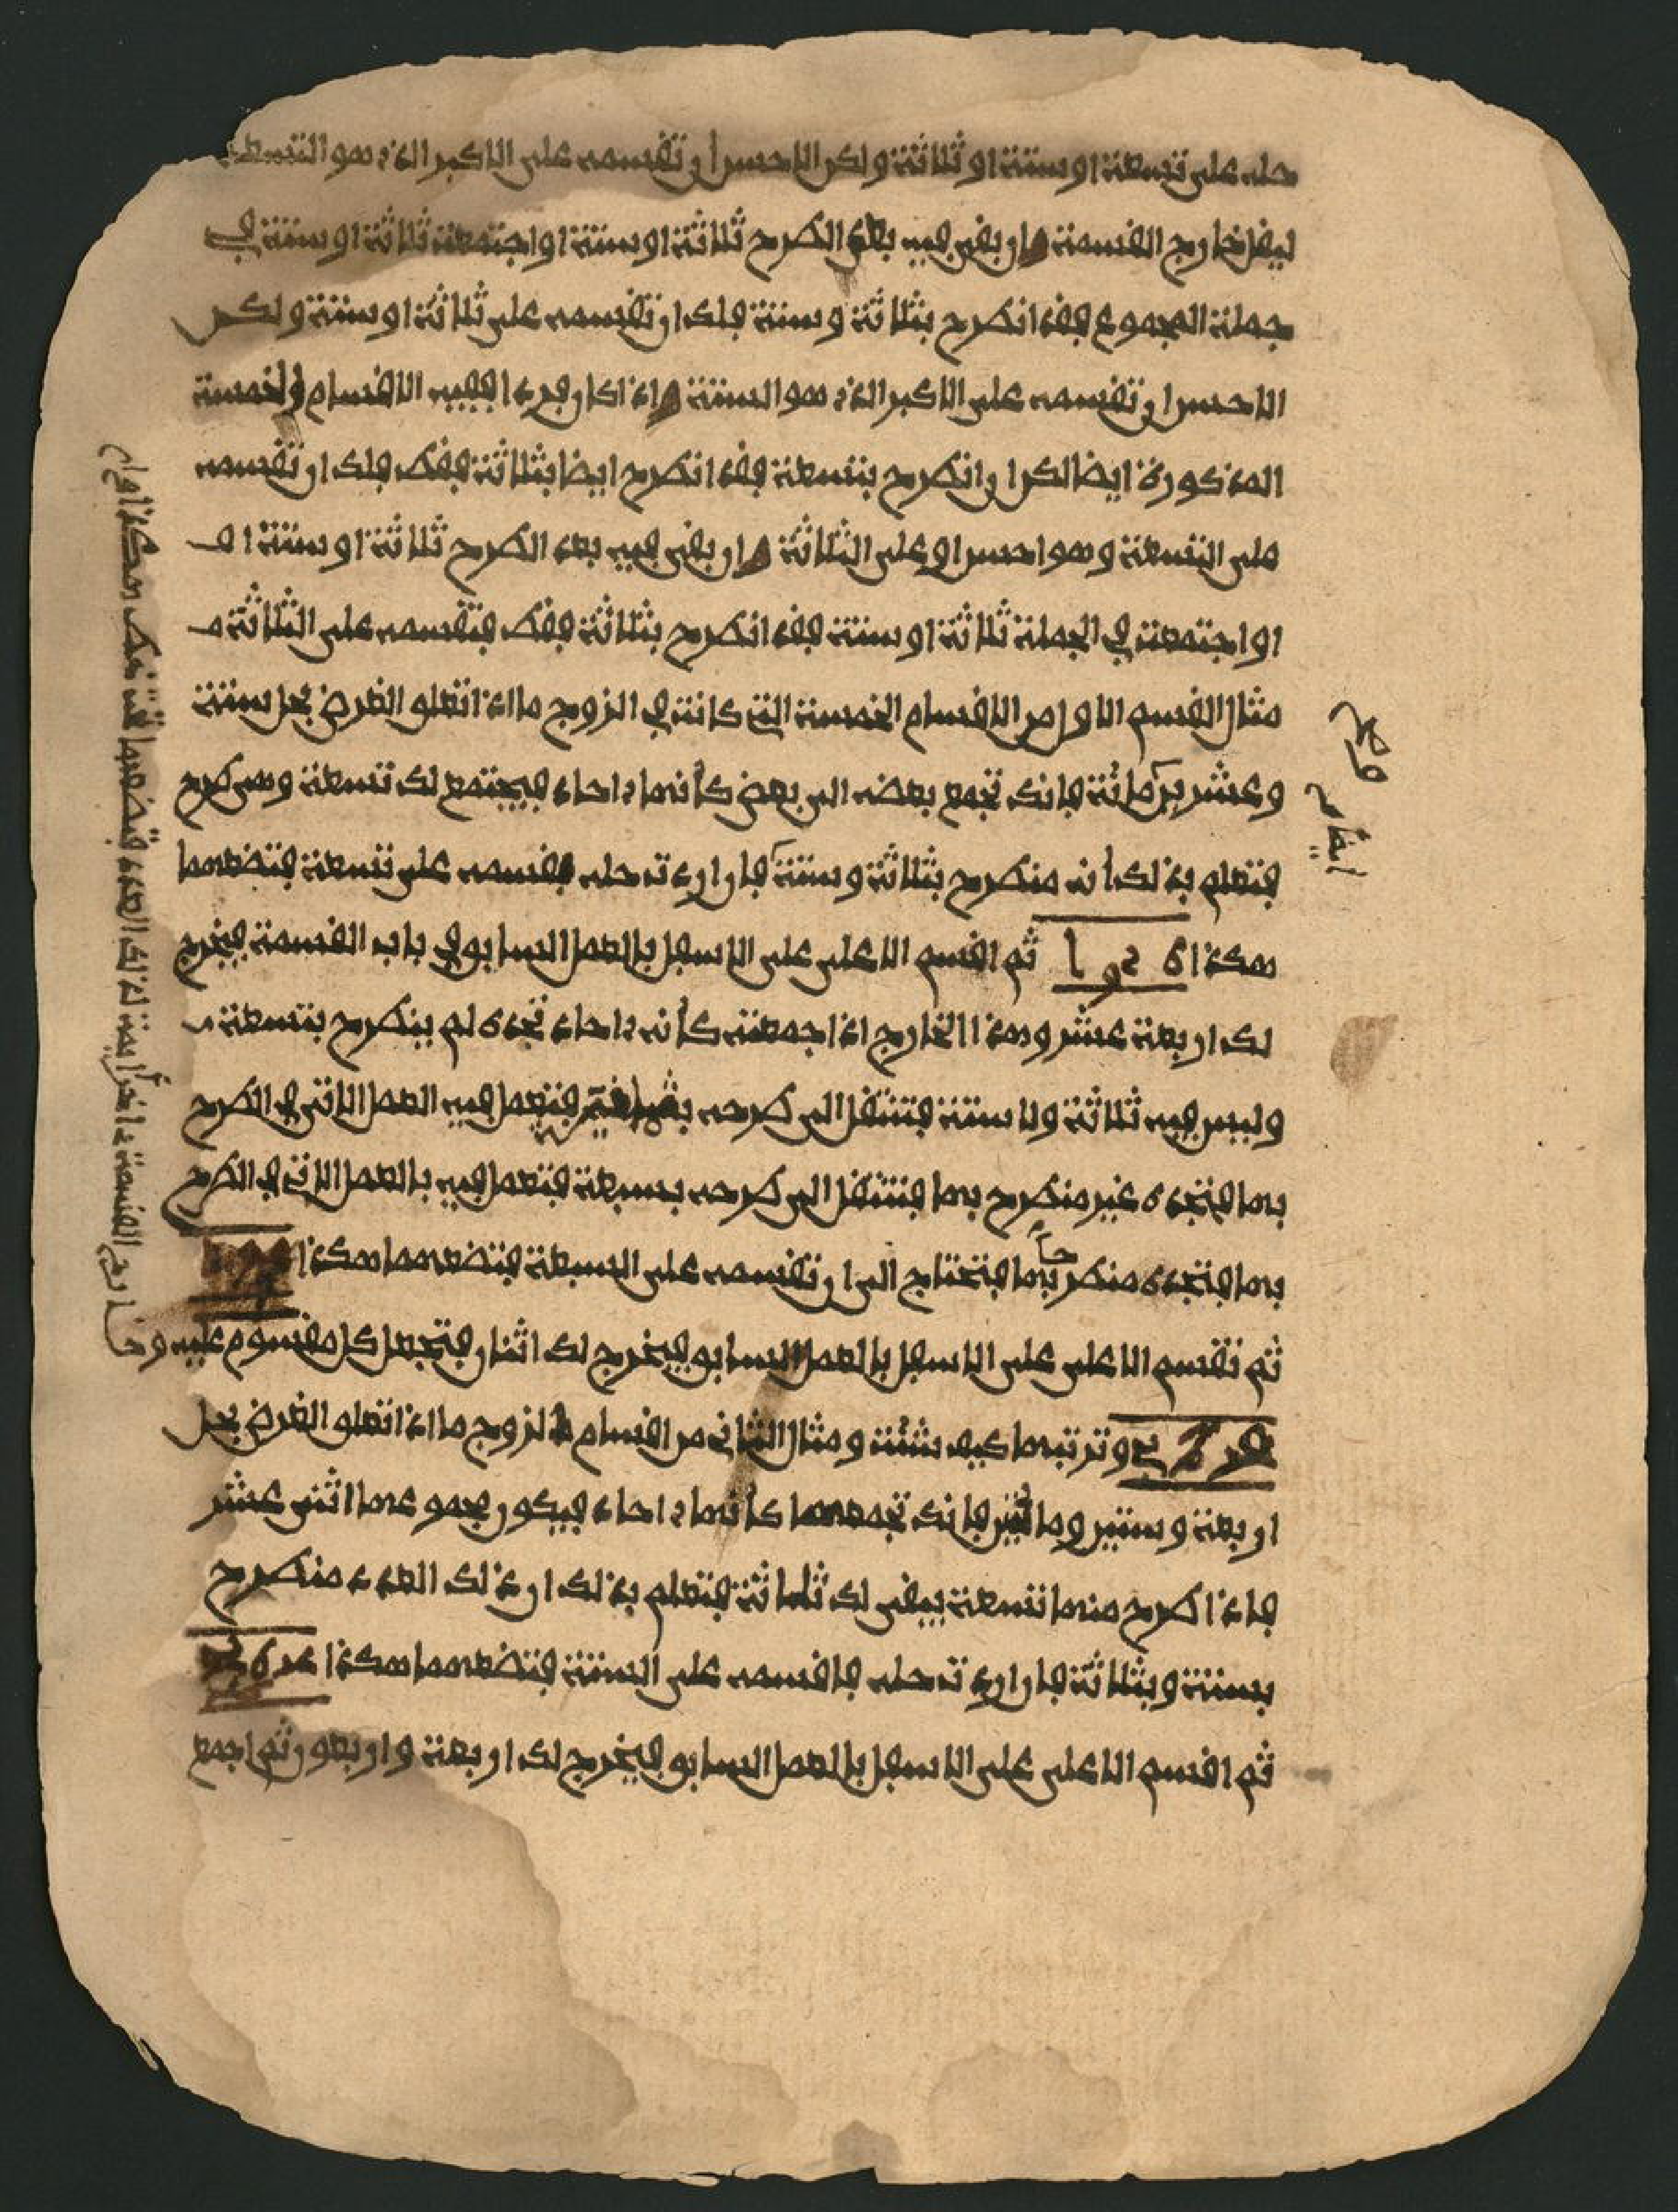 حله على تسعة او ستة او ثلاثة ولكن الاحسن ان تقسمه على الاكبر الذي هو التسعة
ليقل خارج القسمة وان بقي فيه بعد الطرح ثلاثة او ستة او اجتمعت ثلاثة او ستة في
جملة المجموع فقد انطرح بثلاثة وستة فلك ان تقسمه على ثلاثة او ستة ولكن
الاحسن ان تقسمه على الاكبر الذي هو الستة واذا كان فردا ففيه الاقسام الخمسة
المذكورة ايضا لكن ان انطرح بتسعة فقد انطرح ايضا بثلاثة فقط فلك ان تقسمه
على التسعة وهو احسن او على الثلاثة وان بقي فيه بعد الطرح ثلاثة او ستة
او اجتمعت في الجملة ثلاثة او ستة فقد انطرح بثلاثة فقط فتقسمه على الثلاثة
مثال القسم الاول من الاقسام الخمسة التي كانت في الزوج ما اذا تعلق الغرض بحل ستة
وعشرين ومائة فانك تجمع بعضه الى بعض كأنها احاد فيجتمع لك تسعة وهي طرح
فتعلم بذلك أنه منطرح بثلاثة وستة فان اردت حله فقسمه على تسعة فتضعهما
هكذا ثم اقسم الاعلى على الاسفل بالعمل السابق في باب القسمة فيخرج
لك اربعة عشر وهذا الخارج اذا جمعته كأنه احاد تجده لم ينطرح بتسعة
وليس فيه ثلاثة ولا ستة فتنتقل الى طرحه بثمانية فتعمل فيه العمل الاتي في الطرح
بها فتجده غير منطرح بها فتنتقل الى طرحه بسبعة فتعمل فيه بالعمل الاتي في الطرح
بها فتجده منطرحا بها فتحتاج الى ان تقسمه على السبعة فتضعهما هكذا
ثم تقسم الاعلى على الاسفل بالعمل السابق فيخرج لك اثنان فتجعل كل مقسوم عليه وخا
رج القسمة اخرا ائمة لذلك العدد فتضعها تحت خط هكذا
وترتبها كيف شئت ومثال الثاني من اقسام الزوج ما اذا تعلق الغرض بحل
اربعة وستين ومائتين فانك تجمعهما كأنها احاد فيكون مجموعها اثنى عشر
فاذا طرح منها تسعة يبقى لك ثلاثة فتعلم بذلك ان ذلك العدد منطرح
بستة وبثلاثة فان اردت حله فاقسمه على الستة فتضعهما هكذا
ثم اقسم الاعلى على الاسفل بالعمل السابق فيخرج لك اربعة واربعون ثم اجمع